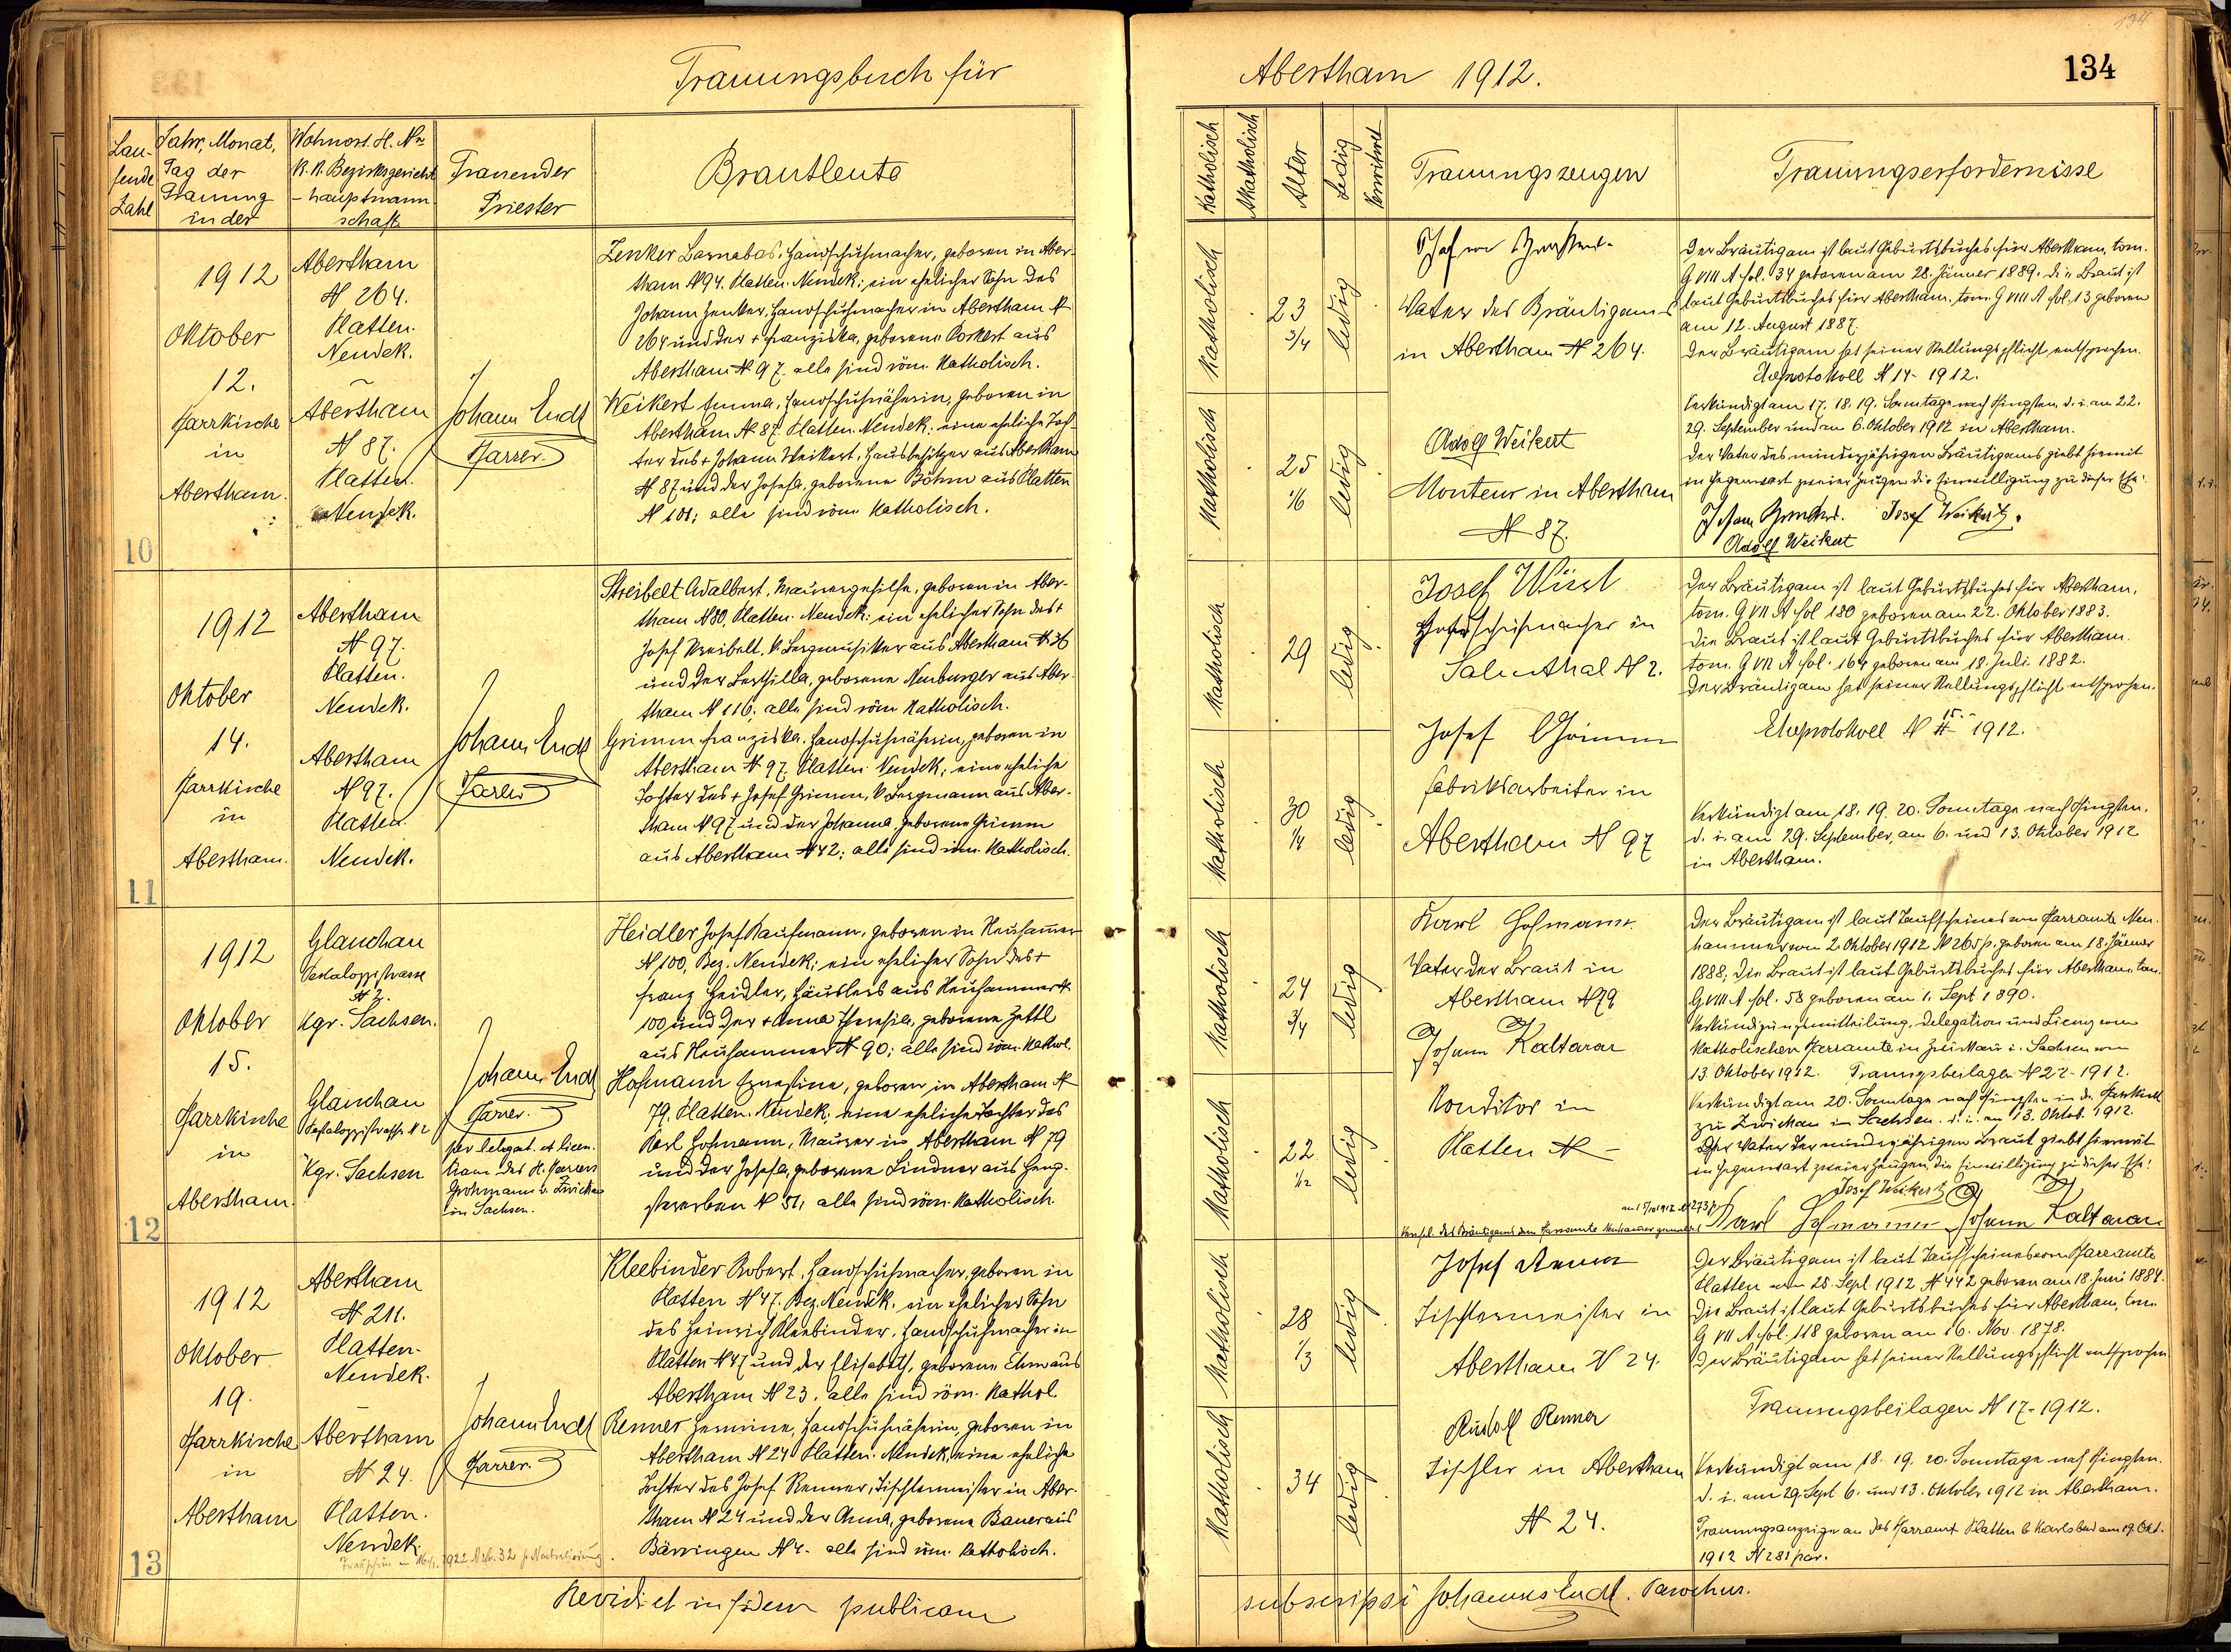 Trauungsbuch für
Abertham 1912.
134
Lau-
fende
Zahl
Jahr, Monat,
Tag der
Trauung
in der
Wohnort. H. No
K. K. Bezirksgericht
- hauptmann
schaft
Trauender
Priester
Brautleute
Katholisch
Akatholisch
Alter
Ledig
Verwitwet
Trauungszeugen
Trauungserfordernisse
10
1912
Oktober
12.
Pfarrkirche
in
Abertham.
Abertham
N 264.
Platten.
Neudek.
Abertham
N 87.
Platten.
Neudek.
Johann Endt
Pfarrer.
Zenker Barnabas, Handschuhmacher, geboren in Aber-
tham N 94. Platten. Neudek; ein ehelicher Sohn des
Johann Zenker, Handschuhmacher in Abertham N
264 und der + Franziska, geborene Porkert aus
Abertham N 97. alle sind röm. Katholisch.
Weikert Emma, Handschuhnäherin, geboren in
Abertham N 87. Platten. Neudek; eine eheliche Toch-
ter des + Johann Weikert, Hausbesitzer aus Abertham
N 87 und der Josefa, geborene Böhm aus Platten
N 101; alle sind röm. Katholisch.
Katholisch
23
3/4
ledig
Katholisch
25
1/6
ledig
Vater des Bräutigams
in Abertham N 264.
Adolf Weikert
Monteur in Abertham
N 87.
Der Bräutigam ist laut Geburtsbuches für Abertham, tom.
G VIII A fol. 34 geboren am 28. Jänner 1889. Die Braut ist
laut Geburtsbuches für Abertham. tom. G VIII A fol. 13 geboren
am 12. August 1887.
Der Bräutigam hat seiner Stellungspflicht entsprochen.
Eheprotokoll N 14 - 1912.
Verkündigt am 17. 18. 19. Sonntage nach Pfingsten, d. i. am 22.
29. September und am 6. Oktober 1912 in Abertham.
Der Vater des minderjährigen Bräutigams giebt hiemit
in Gegenwart zweier Zeugen die Einwilligung zu dieser Ehe:
Josef Weikert.
Adolf Weikert
11
1912
Oktober
14.
Pfarrkirche
in
Abertham.
Abertham
N 97.
Platten.
Neudek.
Abertham
N 97.
Platten
Neudek.
Johann Endt
Pfarrer
Streibelt Adalbert, Maurergehilfe, geboren in Aber-
tham N 80, Platten. Neudek; ein ehelicher Sohn des +
Josef Streibelt, k. Bergmusiker aus Abertham N 36
und der Berthilla, geborene Neuburger aus Aber-
tham N 116; alle sind röm. Katholisch.
Grimm Franziska, Handschuhnäherin, geboren in
Abertham N 97. Platten Neudek; eine eheliche
Tochter des + Josef Grimm, k. Bergmann aus Aber-
tham N 97 und der Johanna, geborene Grimm
aus Abertham N 42; alle sind röm. Katholisch.
Katholisch
29
ledig
Katholisch
30
1/4
ledig
Josef Wüst
Handschuhmacher in
Salmthal N 2.
Josef Grimm
Fabriksarbeiter in
Abertham N 97
Der Bräutigam ist laut Geburtsbuches für Abertham,
tom. G VII A fol 180 geboren am 22. Oktober 1883.
Die Braut ist laut Geburtsbuches für Abertham.
tom. G VII A fol. 164 geboren am 18. Juli 1882.
Der Bräutigam hat seiner Stellungspflicht entsprochen.
Eheprotokoll N 15 - 1912.
Verkündigt am 18. 19. 20. Sonntage nach Pfingsten,
d. i. am 29. September, am 6. und 13. Oktober 1912
in Abertham.
12
1912
Oktober
15.
Pfarrkirche
in
Abertham.
Glauchau
Pestalozzistrasse
N 2.
Kgr. Sachsen.
Glauchau
Pestalozzistrasse N 2
Kgr. Sachsen
Johann Endt
Pfarrer.
per delegat. et licen-
tiam des H. Pfarrers
Grohmann v. Zwickau
in Sachsen.
Heidler Josef Kaufmann, geboren in Neuhammer
N 100, Bez. Neudek; ein ehelicher Sohn des +
Franz Heidler, Häuslers aus Neuhammer N
100 und der + Anna Theresia, geborene Zettl
aus Neuhammer N 90; alle sind röm. Kathol.
Hofmann Ernestine, geboren in Abertham N
79, Platten. Neudek; eine eheliche Tochter des
Karl Hofmann, Maurer in Abertham N 79
und der Josefa, geborene Lindner aus Heng-
stererben N 51; alle sind röm. Katholisch.
Katholisch
24
3/4
ledig
Katholisch
22
1/12
ledig
Karl Hofmann
Vater der Braut in
Abertham N 79
Johann Kaltarar
Konditor in
Platten N -
Der Bräutigam ist laut Taufscheines vom Pfarramte Neu-
hammer vom 2. Oktober 1912 N 265 p. geboren am 18. Jänner
1888, die Braut ist laut Geburtsbuches für Abertham tom.
G VIII A fol. 58 geboren am 1. Sept 1890.
Verkündigungsmitteilung, Delegation und Lizenz vom
Katholischen Pfarramte in Zwickau i. Sachsen vom
13 Oktober 1912. Trauungsbeilagen N 22 - 1912.
Verkündigt am 20. Sonntage nach Pfingsten in der Pfarrkirche
zu Zwickau in Sachsen. d. i. am 13. Oktob. 1912.
Der Vater der minderjährigen Braut giebt hiemit
in Gegenwart zweier Zeugen, die Einwilligung zu dieser Ehe!
Josef Weikert
Karl Hofmann Johann Kaltarar
13
1912
Oktober
19.
Pfarrkirche
in
Abertham
Abertham
N 211.
Platten-
Neudek.
Abertham
N 24.
Platten.
Neudek.
Johann Endt
Pfarrer.
Kleebinder Robert, Handschuhmacher, geboren in
Platten N 47. Bez. Neudek. ein ehelicher Sohn
des Heinrich Kleebinder, Handschuhmacher in
Platten N 47 und der Elisabeth, geborene Ehm aus
Abertham N 23. alle sind röm. Kathol.
Renner Hermine, Handschuhnäherin, geboren in
Abertham N 24 Platten. Neudek, eine eheliche
Tochter des Josef Renner, Tischlermeister in Aber-
tham N 24 und der Anna, geborene Bauer aus
Bärringen N 4. alle sind röm. Katholisch.
Katholisch
28
1/3
ledig
Katholisch
34
ledig
Josef Renner
Tischlermeister in
Abertham N 24.
Rudolf Renner
Tischler in Abertham
N 24.
Der Bräutigam ist laut Taufscheines vom Pfarramte
Platten vom 25. Sept. 1912 N 442 geboren am 18. Juni 1884.
Die Braut ist laut Geburtsbuches für Abertham, tom.
G VII A fol. 118 geboren am 16. Nov. 1878.
Der Bräutigam hat seiner Stellungspflicht entsprochen
Trauungsbeilagen N 17 - 1912.
Verkündigt am 18. 19. 20. Sonntage nach Pfingsten.
d. i. am 29. Sept 6. und 13. Oktober 1912 in Abertham.
Trauungsanzeige an das Pfarramt Platten b Karlsbad am 19. Okt.
1912 N 281 par.
Revidi et in fidem publicam
subscripsi Johannes Endt. Parochus.